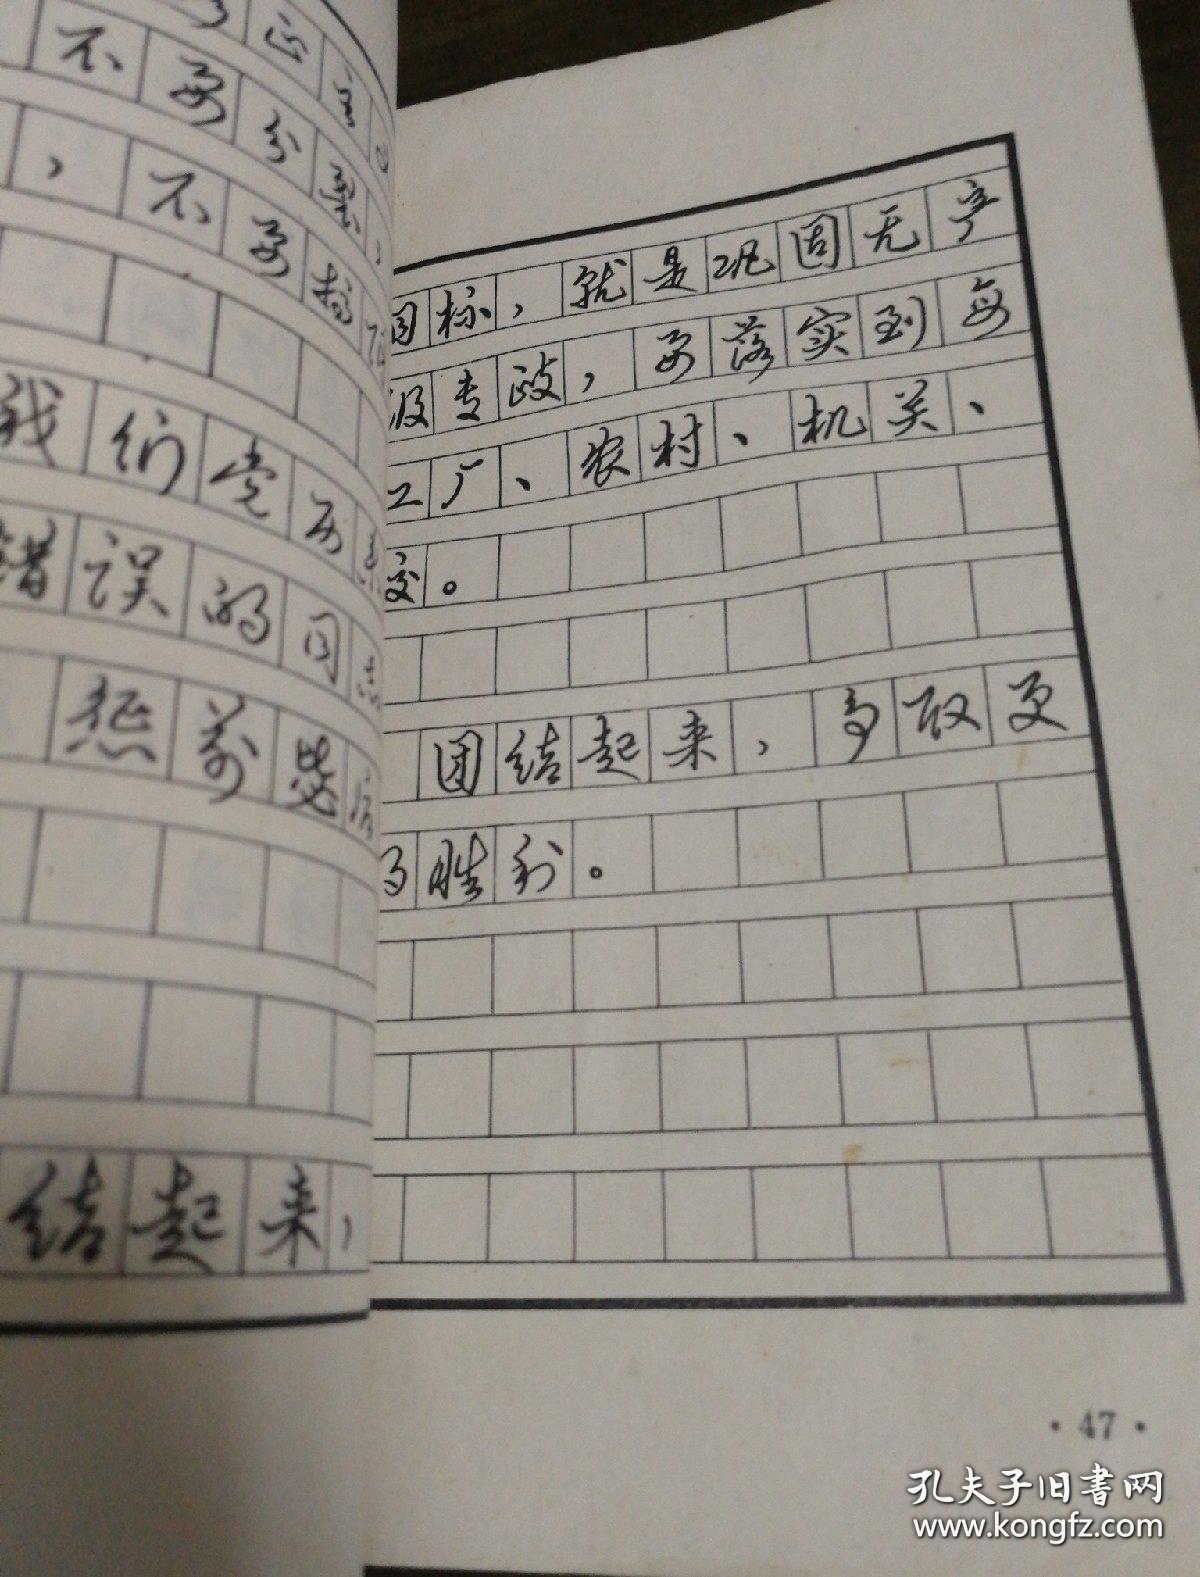 正
不要分裂，
，不要搞
我们党
错误的同志
惩前毖
结起来，
目标，就是巩固无产
级专政，要落实到每
工厂、农村、机关、
校。
团结起来，争取更
的胜利。
·47·
孔夫子旧书网
www.kongfz.com